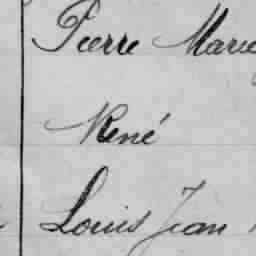 Pierre Marie
René
Louis Jean